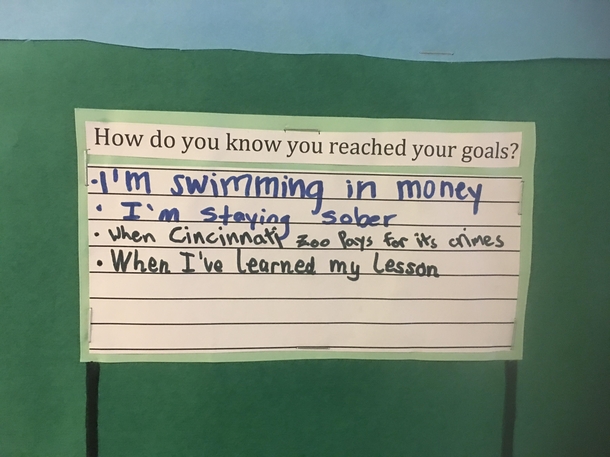 How do you know you reached your goals?
·I'm swimming in money
· I'm staying sober
· When Cincinnati Zoo Pays for its crimes
· When I've learned my Lesson